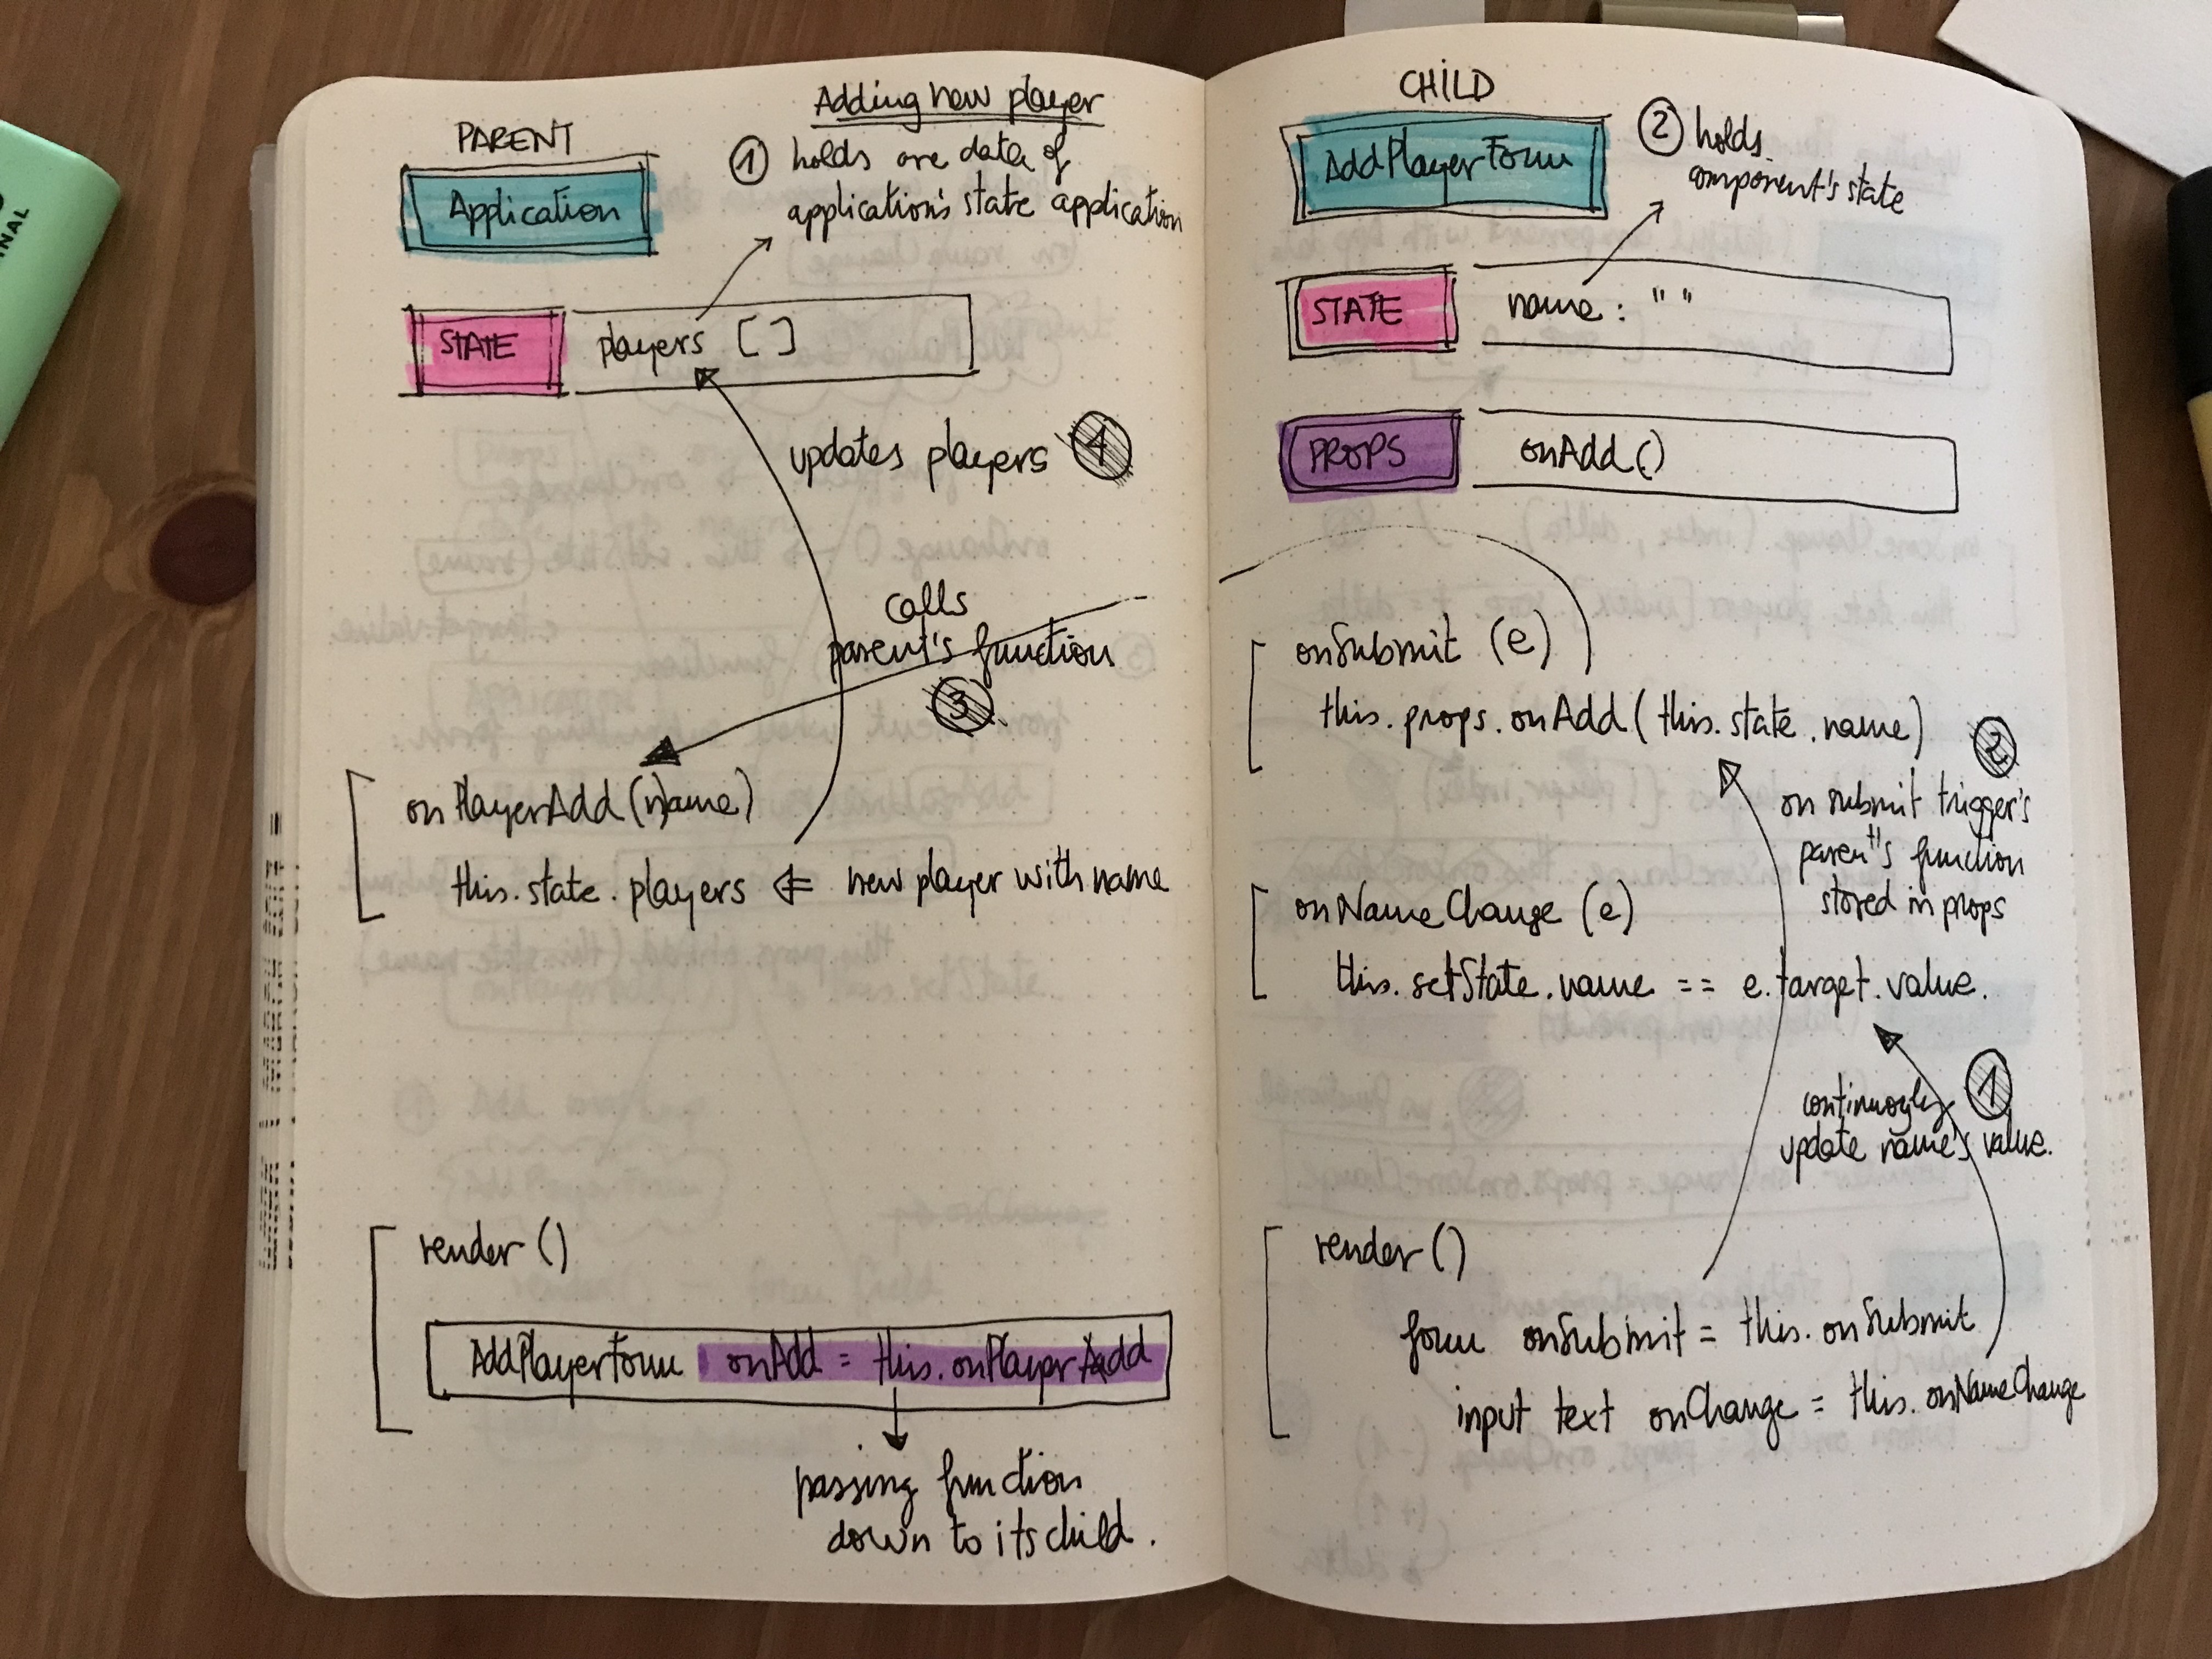 Adding new player
PARENT
Application
① holds are data of
application's state application
STATE players [ ]
updates players ④
calls
parent's function
③
onPlayerAdd (name)
this.state.players ⇐ new player with name
render ()
AddPlayerForm onAdd = this.onPlayerAdd
passing function
down to its child.
CHILD
AddPlayerForm
② holds
component's state
STATE name: " "
PROPS onAdd()
onSubmit (e)
this.props.onAdd(this.state.name)
②
on submit trigger's
parent's function
stored in props
onNameChange (e)
this.setState.name == e.target.value.
①
continuously
update name's value.
render ()
form onSubmit = this.onSubmit
input text onChange = this.onNameChange
INAL